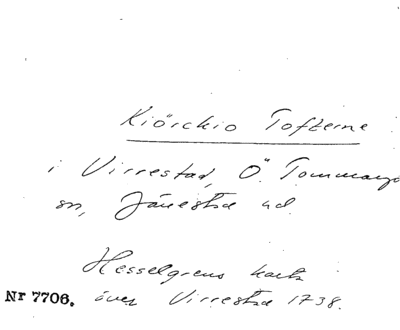 Kiörckio Tofterne
i Virrestad, Ö. Tommarps
sn, Järrestad hd.
Hesselgrens karta
Nr 7706. över Virrestad 1738.